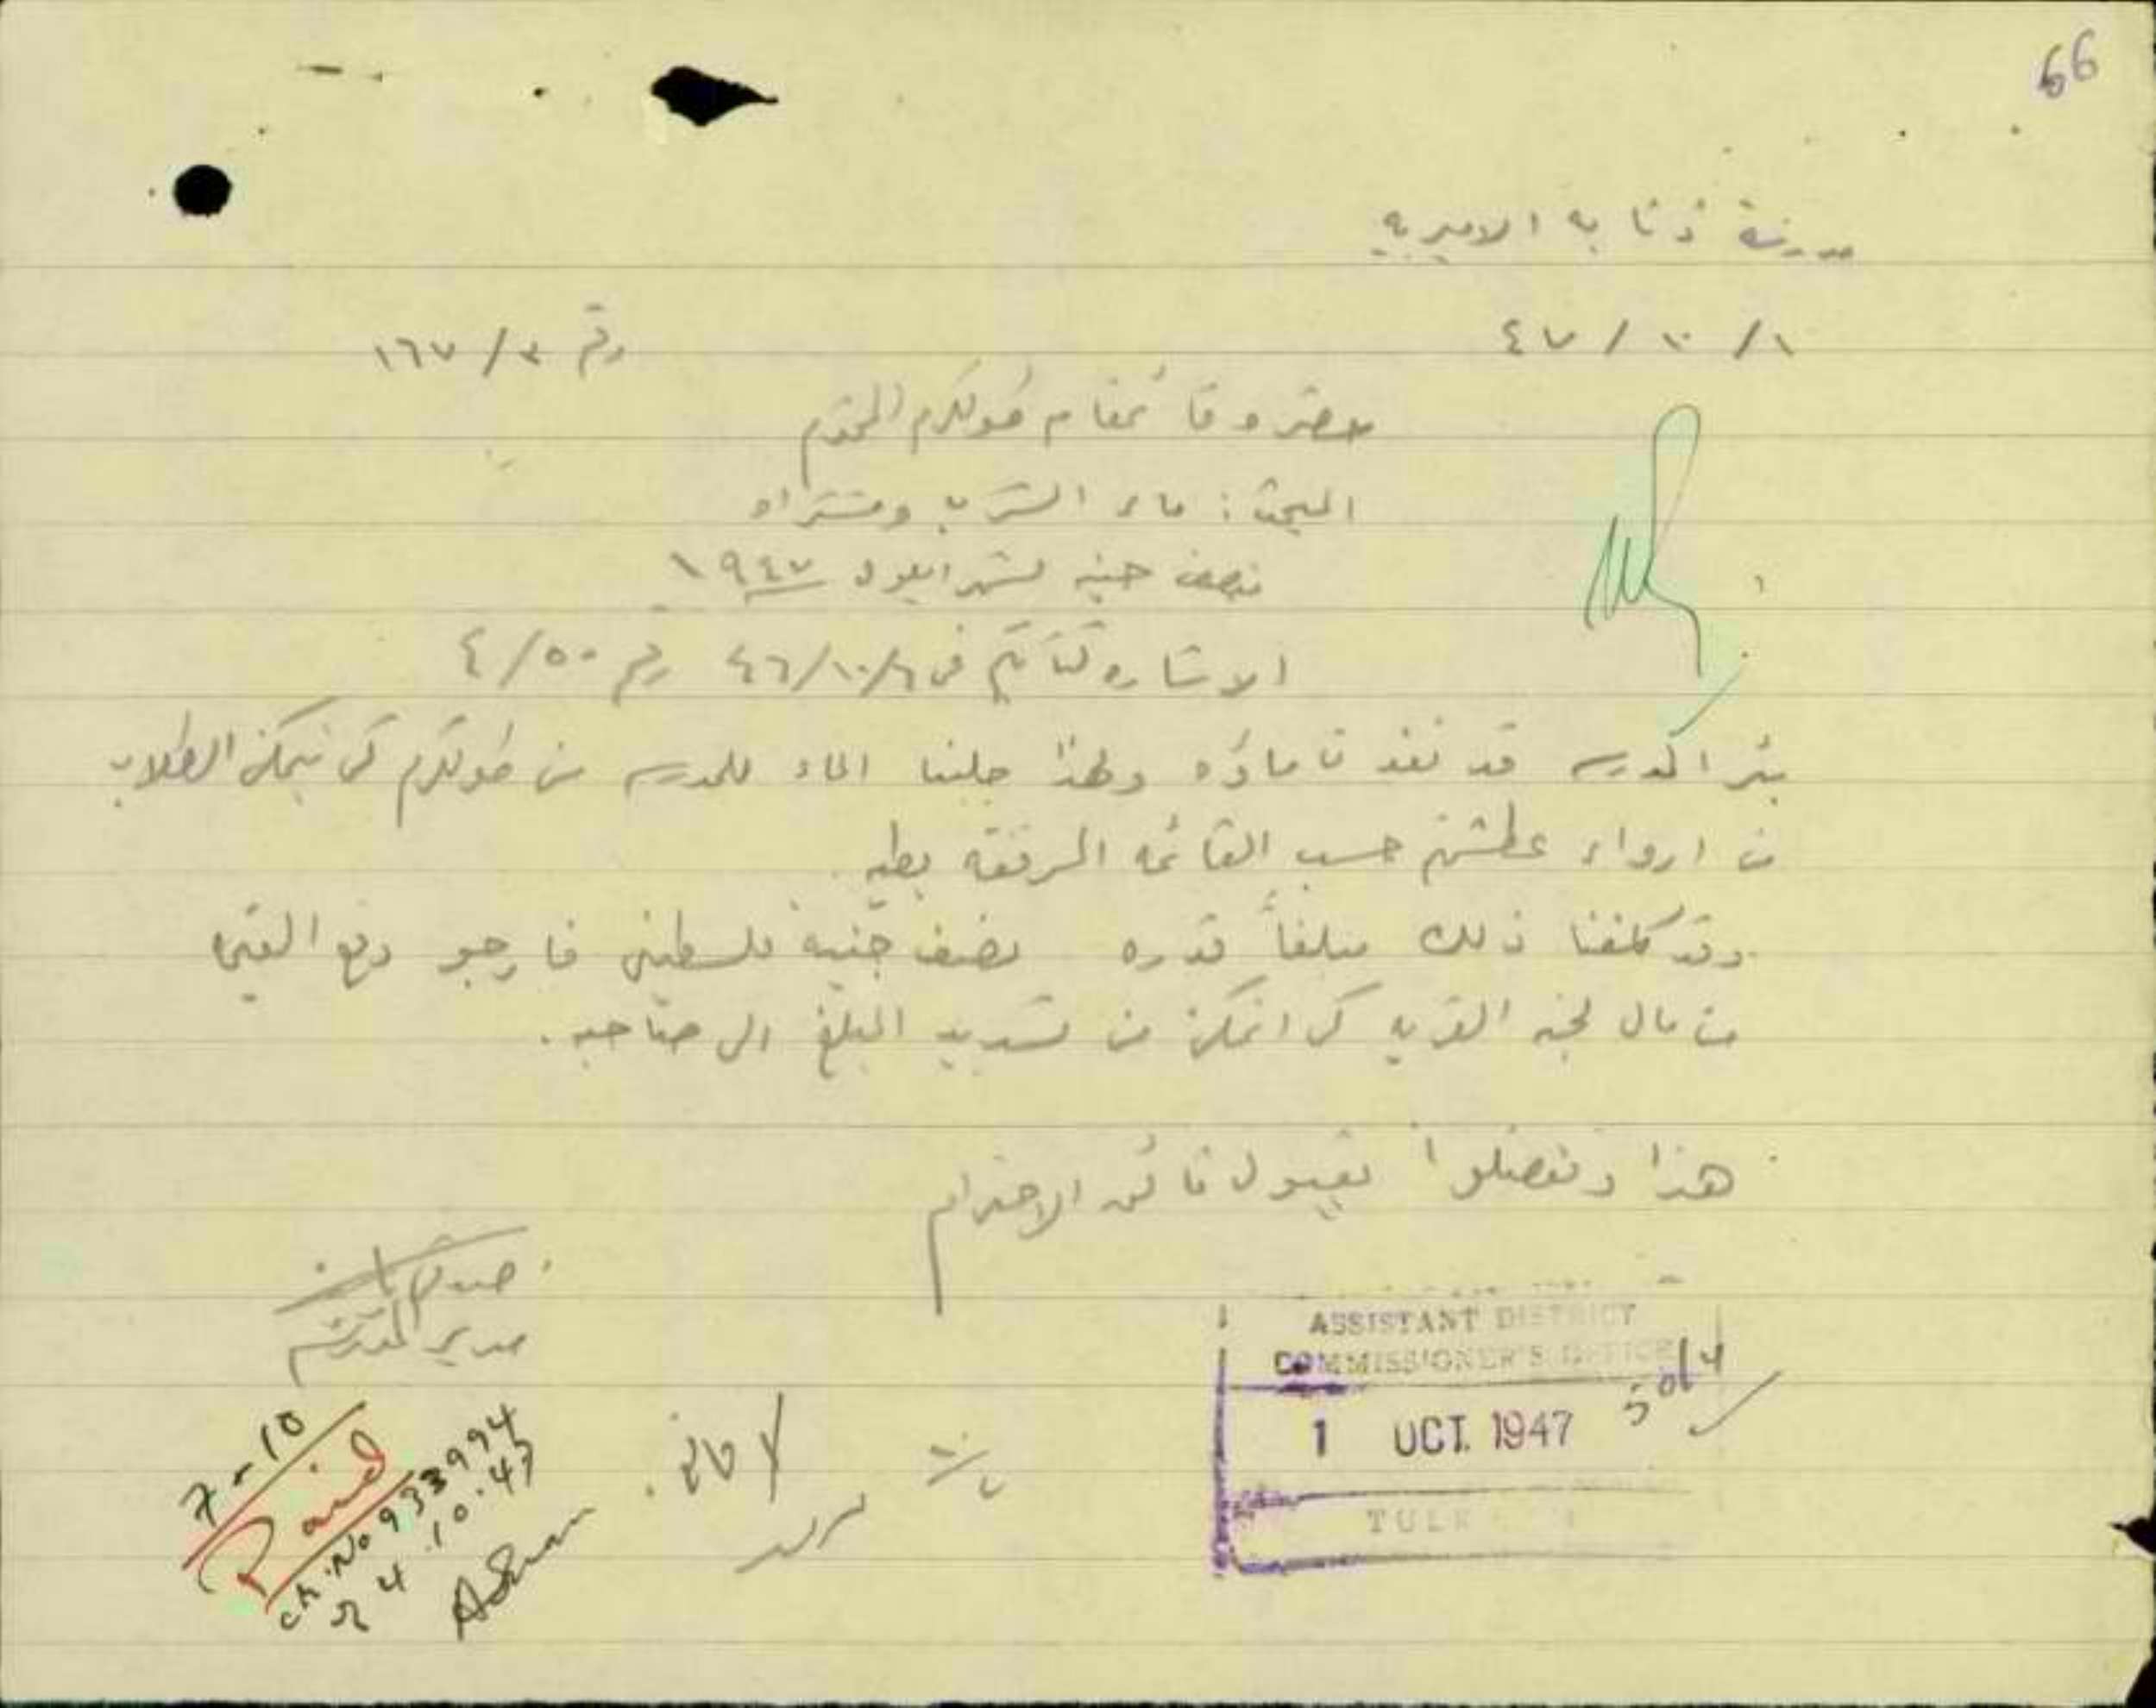 66
مدرسة ذنابه الاميريه
١/ ١٠ / ٤٧
رقم ٣/ ١٦٧
حضرة قائمقام طولكرم المحترم
المبحث : ماء الشرب
نصف جنيه لشهر ايلول ١٩٤٧
الاشاره كتابكم في ٦/١٠/٤٦ رقم ٤/٥٠
بئر المدرسه قد نفذ ماؤه ولهذا جلبنا الماء للمدرسه من طولكرم كي يتمكن الطلاب
من ارواء عطشهم حسب القائمه المرفقه بطيه .
وقد كلفنا ذلك مبلغاً قدره نصف جنيه فلسطيني فارجو دفع
من مال لجنه القريه كي اتمكن من تسديد المبلغ الى صاحبه .
هذا وتفضلوا بقبول فائق الاحترام
مدير المدرسه
ASSISTANT DISTRICT
COMMISSIONER'S OFFICE
50/4
1 OCT. 1947
7-10
Paid
ch. No 933994
4.10.47